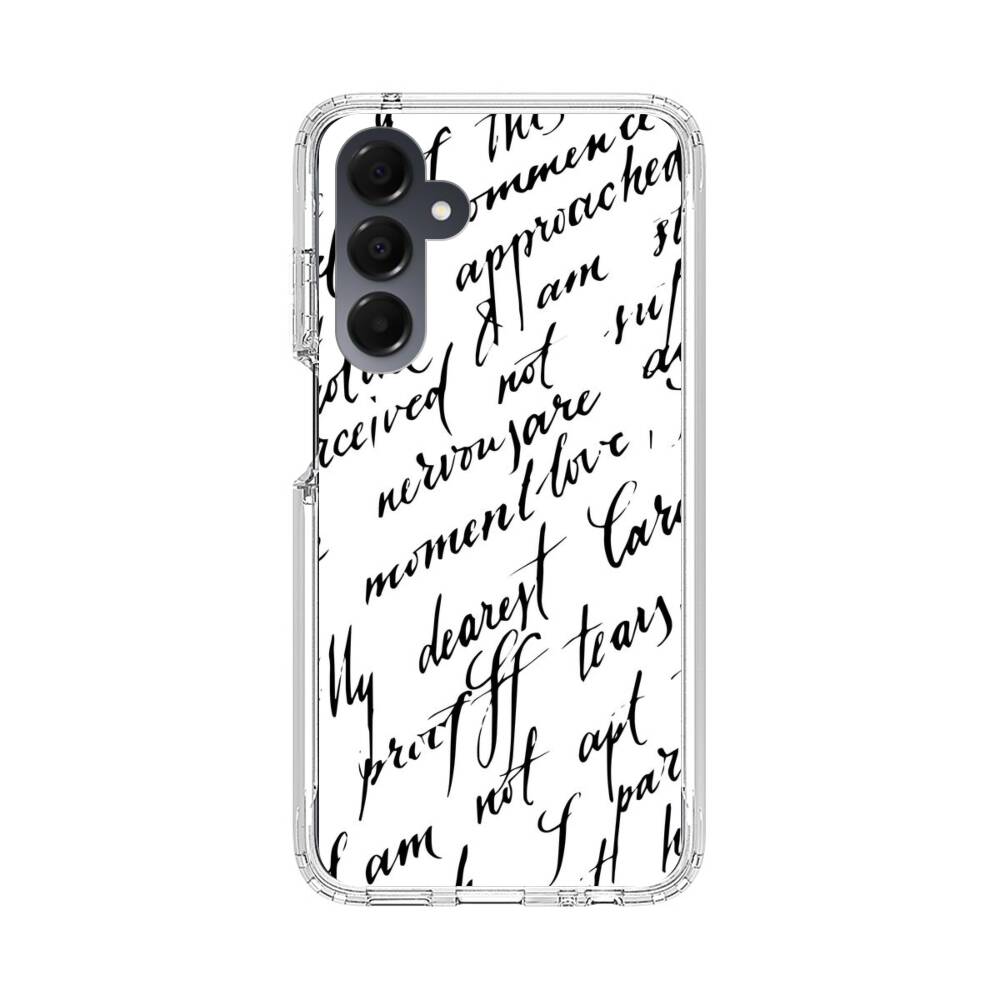 of this
ommence
approached
I am st
rceived not suf
nervous are
moment love,
My dearest Car
proof tears
not apt
I am I par